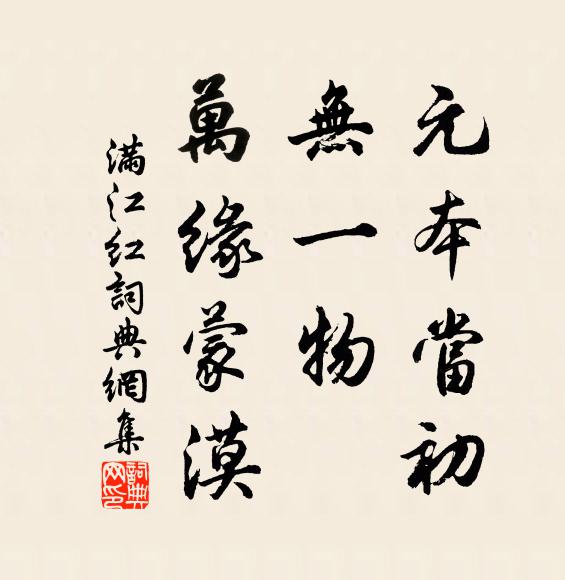 元本當初
無一物
萬緣蒙漠
滿江紅詞典網集
詞典网印